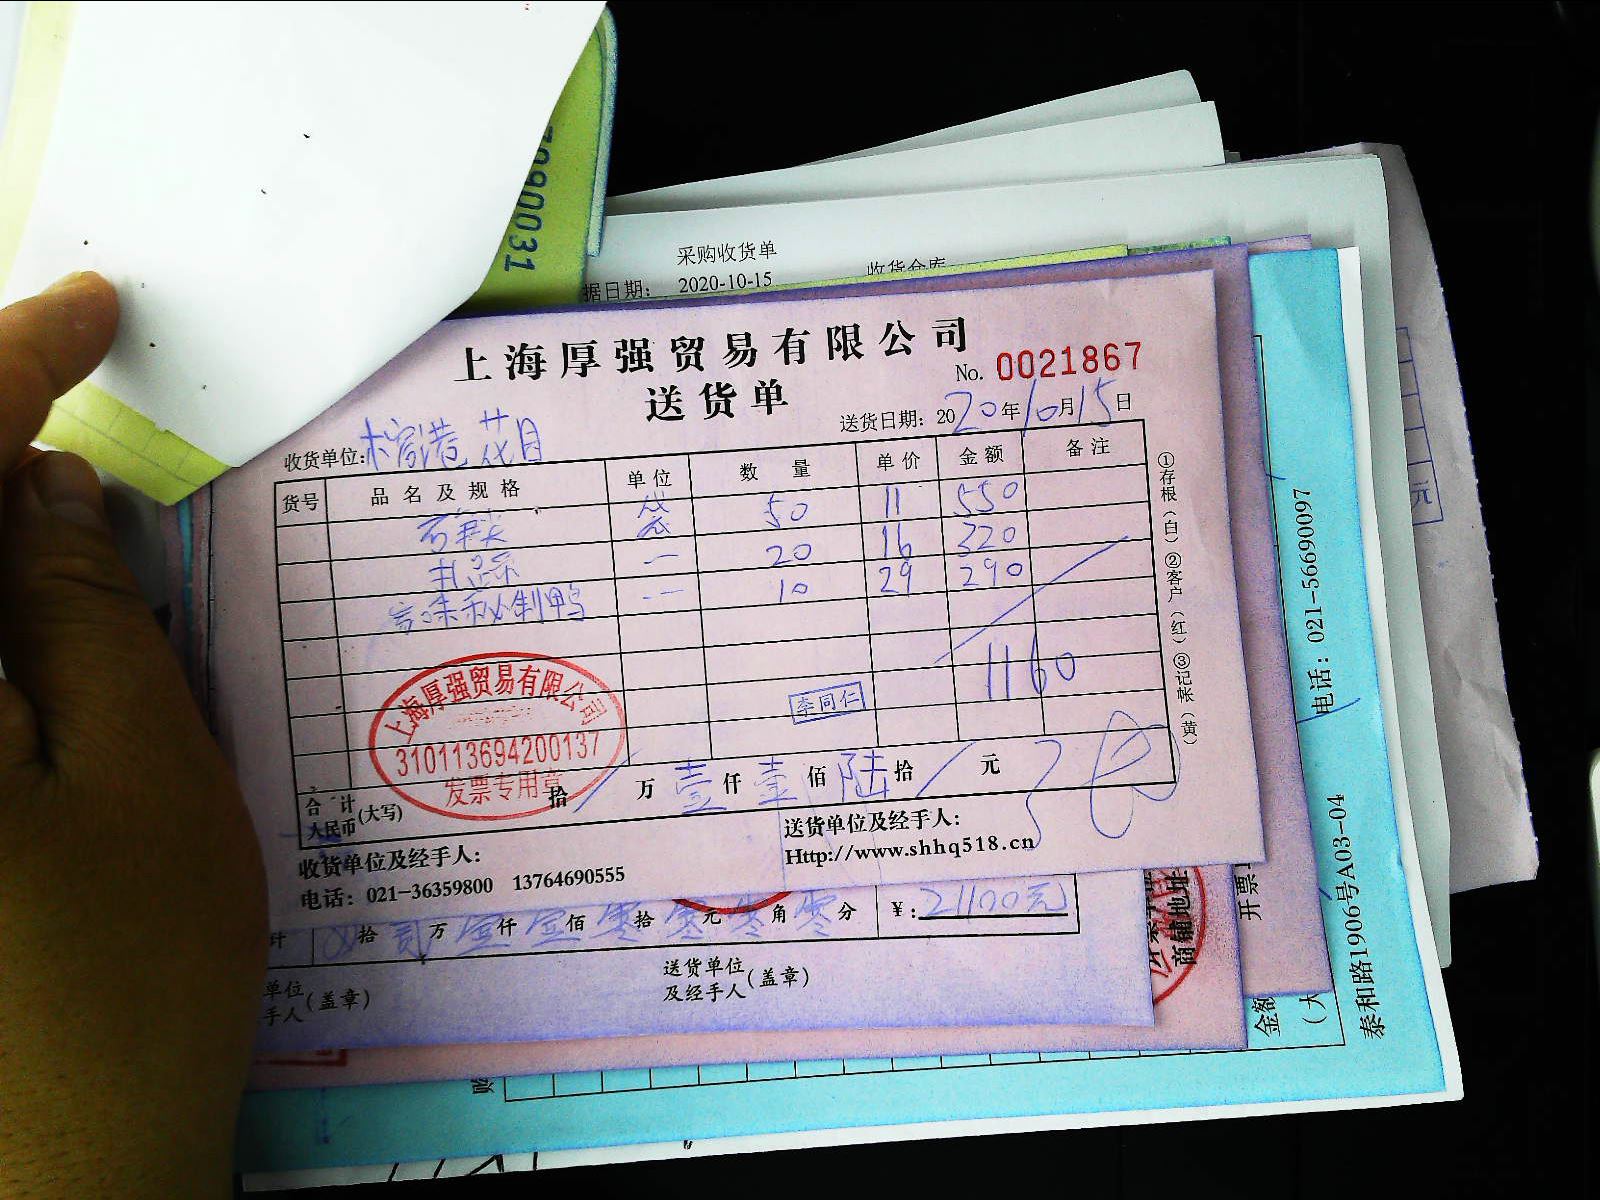 7090031
采购收货单
收货仓库
据日期： 2020-10-15
上海厚强贸易有限公司
送货单
No. 0021867
送货日期：2020年10月15日
收货单位：
货号 品名及规格 单位 数量 单价 金额 备注
袋 50 11 550
20 16 320
秘制鸭 10 29 290
1160
李同仁
上海厚强贸易有限公司
310113694200137
发票专用章
合计人民币(大写) 拾 万 壹仟壹佰陆拾 元
收货单位及经手人：
送货单位及经手人：
Http://www.shhq518.cn
电话：021-36359800 13764690555
①存根（白）②客户（红）③记帐（黄）
计 拾贰万壹仟壹佰零拾零元零角零分 ¥：21100元
单位
手人(盖章)
送货单位
及经手人(盖章)
商铺地址
开票
金额
（大
电话：021-56690097
泰和路1906号A03-04
购
元